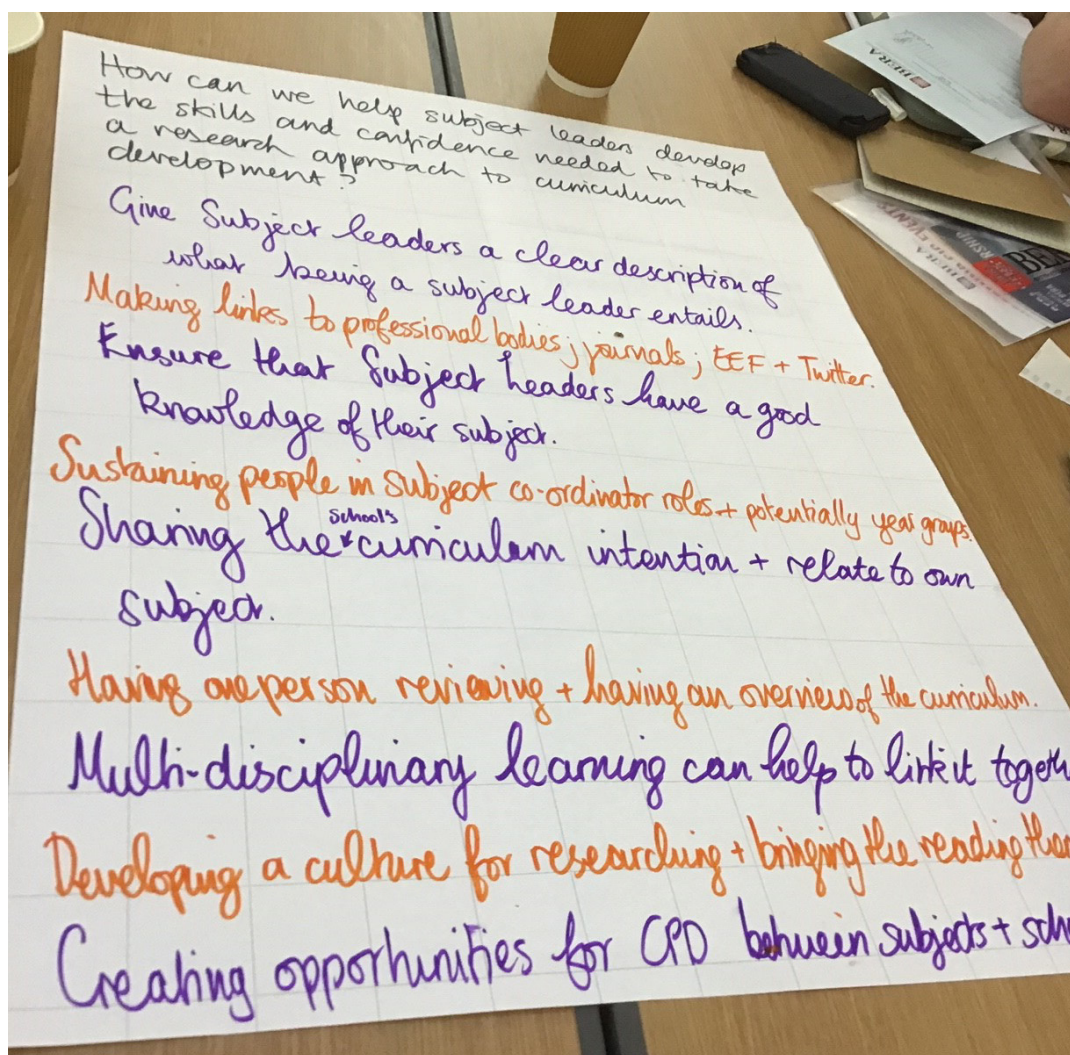 How can we help subject leaders develop
the skills and confidence needed to take
a research approach to curriculum
development?
Give Subject leaders a clear description of
what being a subject leader entails.
Making links to professional bodies; journals; EEF + Twitter.
Ensure that Subject headers have a good
knowledge of their subject.
Sustaining people in subject co-ordinator roles + potentially year groups.
Sharing the school's curriculum intention + relate to own
subject.
Having one person reviewing + having an overview of the curriculum.
Multi-disciplinary learning can help to link it togeth
Developing a culture for researching + bringing the reading
Creating opportunities for CPD between subjects + sch
BERA
BERA